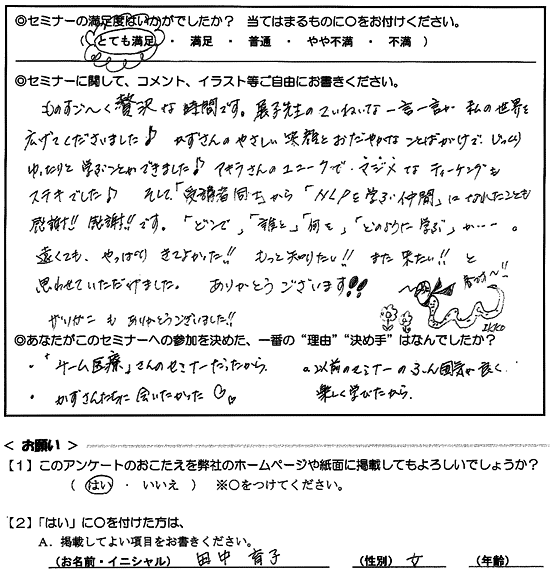 ◎セミナーの満足度はいかがでしたか？ 当てはまるものに〇をお付けください。
（ とても満足 ・ 満足 ・ 普通 ・ やや不満 ・ 不満 ）
◎セミナーに関して、コメント、イラスト等ご自由にお書きください。
ものすご〜く贅沢な時間です。展子先生のていねいな一言一言が 私の世界を
広げてくださいました♪ かずさんのやさしい笑顔とおだやかなことばがけで、じっくり
ゆったりと学ぶことができました♪ アキラさんのユニークで、マジメなティーチングも
ステキでした♪ そして「受講者同士」から「NLPを学ぶ仲間」になれたことも
感謝!! 感謝!! です。「どこで」、「誰と」「何を」、「どのように学ぶ」か……。
遠くても、やっぱり きてよかった!! もっと知りたい!! また来たい!! と
思わせていただけました。 ありがとうございます!!
ありがとうございました!!
◎あなたがこのセミナーへの参加を決めた、一番の“理由”“決め手”はなんでしたか？
・「チーム医療」さんのセミナーだったから。 。以前のセミナーのふん囲気が良く、
・ かずさんたちに会いたかった 楽しく学びたから。
＜ お願い ＞
【1】このアンケートのおこたえを弊社のホームページや紙面に掲載してもよろしいでしょうか？
（ はい ・ いいえ ） ※〇をつけてください。
【2】「はい」に〇を付けた方は、
A．掲載してよい項目をお書きください。
（お名前・イニシャル） 田中 育子 （性別） 女 （年齢）